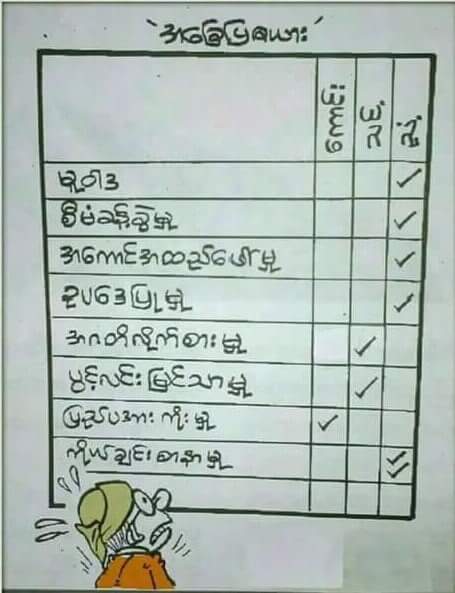 'အခြေပြဇယား'
ကောင်း သင့် ညံ့
မူဝါဒ
စီမံခန့်ခွဲမှု
အကောင်အထည်ဖော်မှု
ဥပဒေပြုမှု
အဂတိလိုက်စားမှု
ပွင့်လင်းမြင်သာမှု
ပြည်ပအားကိုးမှု
ကိုယ်ချင်းစာနာမှု